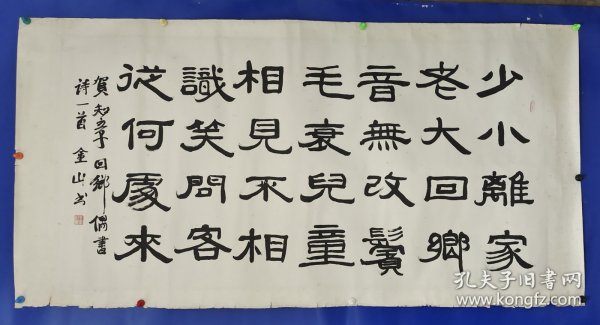 少小離家
老大回鄉
音無改鬢
毛衰兒童
相見不相
識笑問客
從何處來
賀知章 回鄉偶書
詩一首 金山书
孔夫子旧书网
www.kongfz.com